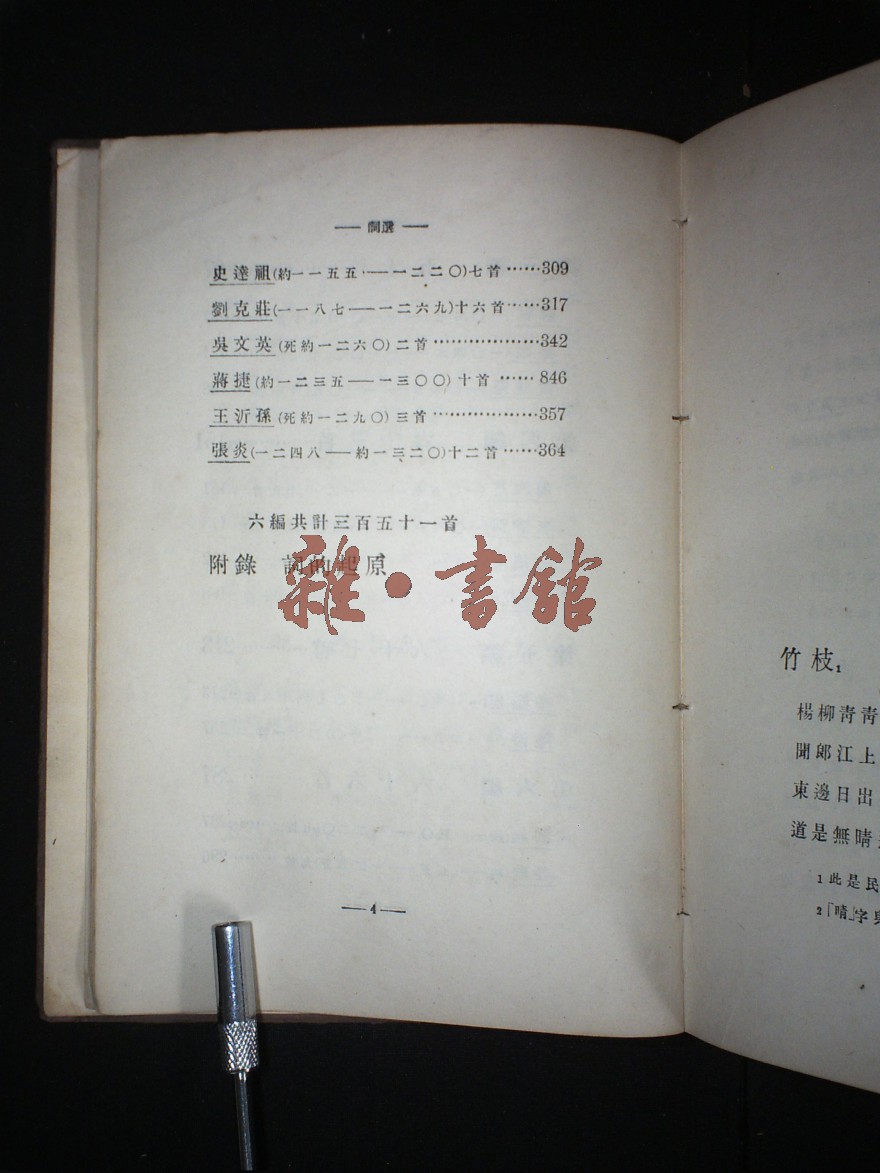 — 詞選 —
史達祖(約一一五五·—一二二〇)七首……309
劉克莊(一一八七——一二六九)十六首……317
吳文英(死約一二六〇)二首………………342
蔣捷(約一二三五——一三〇〇)十首……846
王沂孫(死約一二九〇)三首………………357
張炎(一二四八——約一三二〇)十二首……364
六編共計三百五十一首
附錄 詞的起原
雜·書館
—4—
竹枝1
楊柳靑靑
聞郞江上
東邊日出
道是無晴
1此是民
2「晴」字與